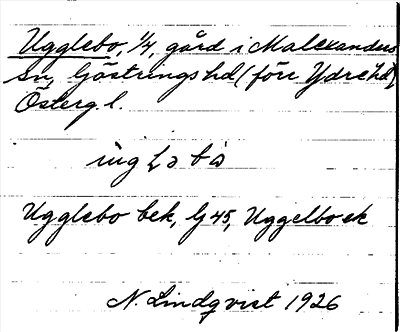 Ugglebo, 1/4, gård i Malexanders
sn, Göstrings hd (förr Ydre hd)
Östergl.
Ugglebo bek, G 45, Uggelbo ek
N. Lindqvist 1926